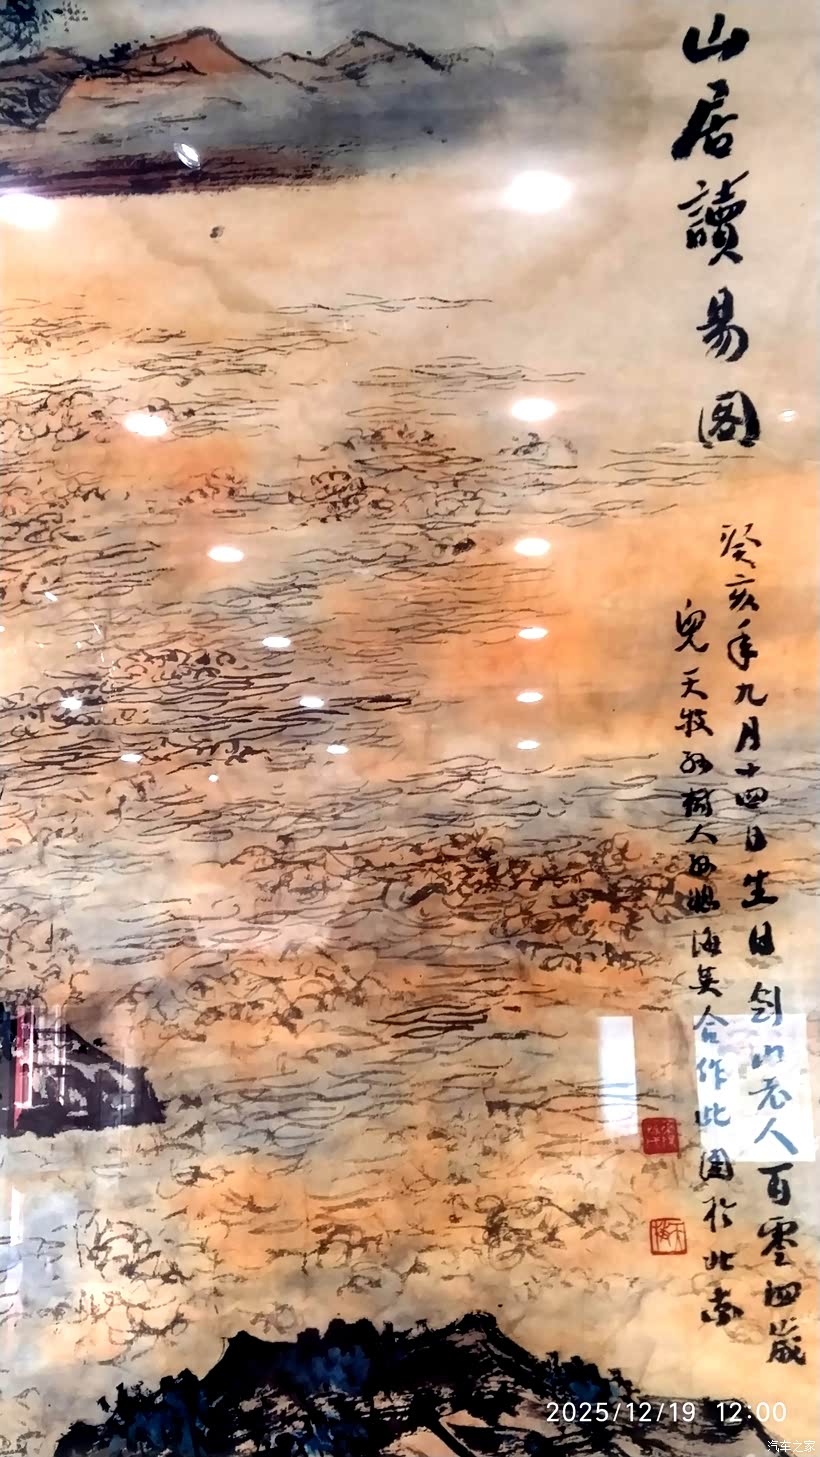 山居讀易圖
癸亥年九月十四日生日劍山老人百零四歲
兒天牧孫樹人孫媳海英合作此圖於北京
2025/12/19 12:00
汽车之家